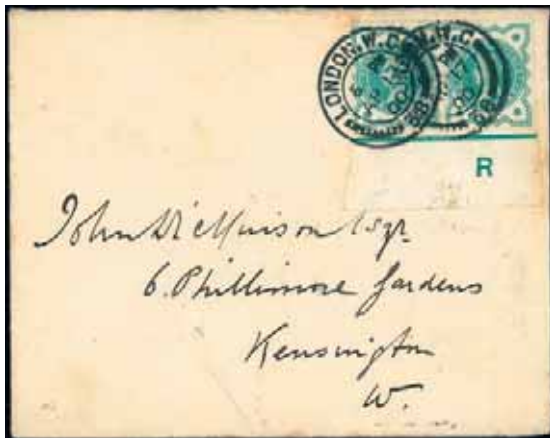 LONDON.W.C
88
R
John Dickinson Esqr.
6. Phillimore Gardens
Kensington
W.